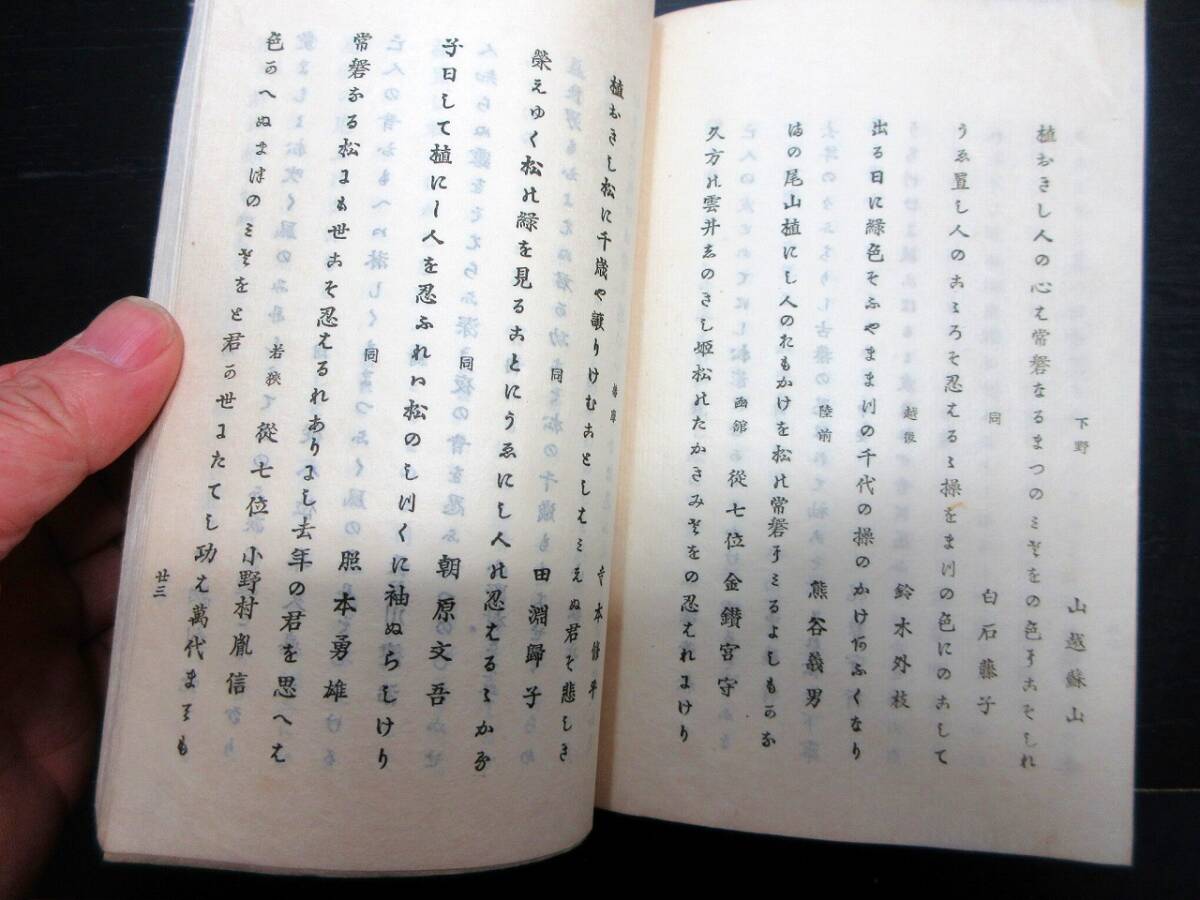 下野 山越蘇山
植おきし人の心は常磐なるまつのミさをの色にこそしれ
同 白石藤子
うゑ置し人のこゝろそ忍はるゝ操をまつの色にのこして
越後 鈴木外枝
出る日に緑色そふやままつの千代の操のかけあふくなり
陸前 熊谷義男
はの尾山植にし人のたもかけを松の常磐にミるよしもかな
函館 從七位 金鑚宮守
久方の雲井しのきし姫松のたかきみさをの忍はれにけり
寺本
植おきし松に千歳や譲りけむことしはミえぬ君そ悲しき
同 田淵歸子
榮えゆく松の緑を見ることにうゑにし人の忍はるゝかな
同 朝原文吾
子日して植にし人を忍ふれハ松のしつくに袖ぬらしけり
同 照本勇雄
常磐なる松にも世こそ忍はるれありにし去年の君を思へは
若狹 從七位 小野村胤信
色かへぬまつのミさをと君か世にたてし功は萬代まても
廿三